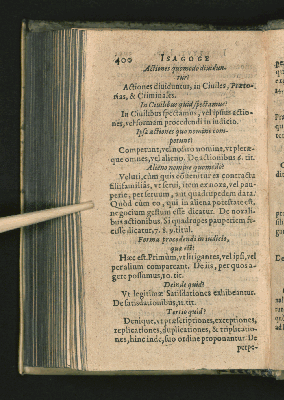 400 ISAGOGE
Actiones quomodo diuidun-
tur?
Actiones diuiduntur, in Ciuiles, Præto-
rias, & Criminales.
In Ciuilibus quid spectamus?
In Ciuilibus spectamus, vel ipsius actio-
nes, vel formam procedendi in iudicio.
Ipsæ actiones quo nomine com-
petunt?
Competunt, vel nostro nomine, vt pleræ-
que omnes, vel alieno. De actionibus 6. tit.
Alieno nomine quomodo?
Veluti, cùm quis conuenitur ex contractu
filiifamiliâs, vt serui, item ex noxa, vel pau-
perie, pet seruum, aut quadrupedem data:
Quòd cùm eo, qui in aliena potestate est,
negocium gestum esse dicatur. De noxali-
bus actionibus. Si quadrupes pauperiem fe-
cisse dicatur, 7. 8. 9. titul.
Forma procedendi in iudicio,
quæ est?
Hæc est. Primum, vt litigantes, vel ipsi, vel
per alium compareant. De iis, per quos a-
gere possumus, 10. tit.
Deinde quid?
Vt legitimæ Satisdationes exhibeantur.
De satisdationibus, 11. tit.
Tertio quid?
Denique, vt præscriptiones, exceptiones,
replicationes, duplicationes, & triplicatio-
nes, hinc inde, suo ordine proponantur. De
perpe-